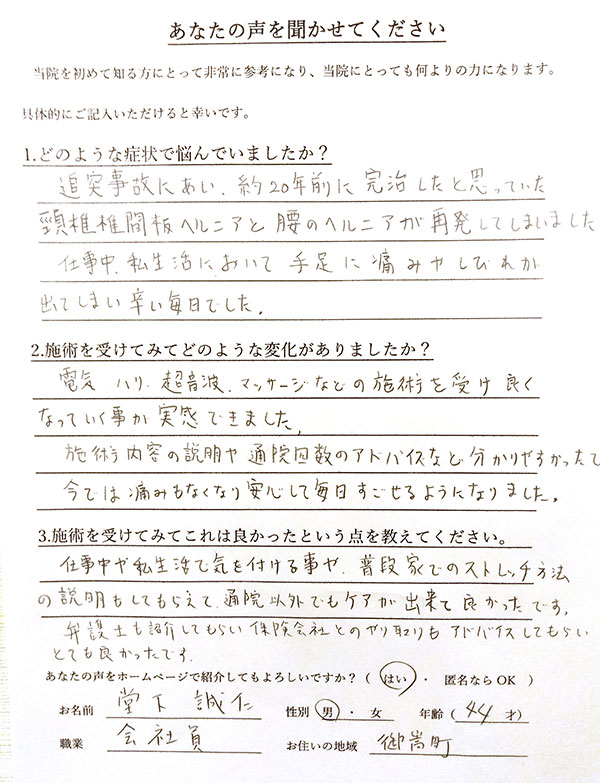 あなたの声を聞かせてください
当院を初めて知る方にとって非常に参考になり、当院にとっても何よりの力になります。
具体的にご記入いただけると幸いです。
1.どのような症状で悩んでいましたか？
追突事故にあい、約20年前に完治したと思っていた
頸椎椎間板ヘルニアと腰のヘルニアが再発してしまいました
仕事中、私生活において手足に痛みやしびれが
出てしまい辛い毎日でした。
2.施術を受けてみてどのような変化がありましたか？
電気、ハリ、超音波、マッサージなどの施術を受け良く
なっていく事が実感できました。
施術内容の説明や通院回数のアドバイスなど分かりやすかったて
今では痛みもなくなり安心して毎日すごせるようになりました。
3.施術を受けてみてこれは良かったという点を教えてください。
仕事中や私生活で気を付ける事や、普段家でのストレッチ方法
の説明もしてもらえて、通院以外でもケアが出来て良かったです。
弁護士も紹介してもらい保険会社とのやり取りもアドバイスしてもらい
とても良かったです。
あなたの声をホームページで紹介してもよろしいですか？（ はい ・ 匿名ならOK ）
お名前 堂下 誠仁 性別 男・女 年齢（ 44 才）
職業 会社員 お住いの地域 御嵩町